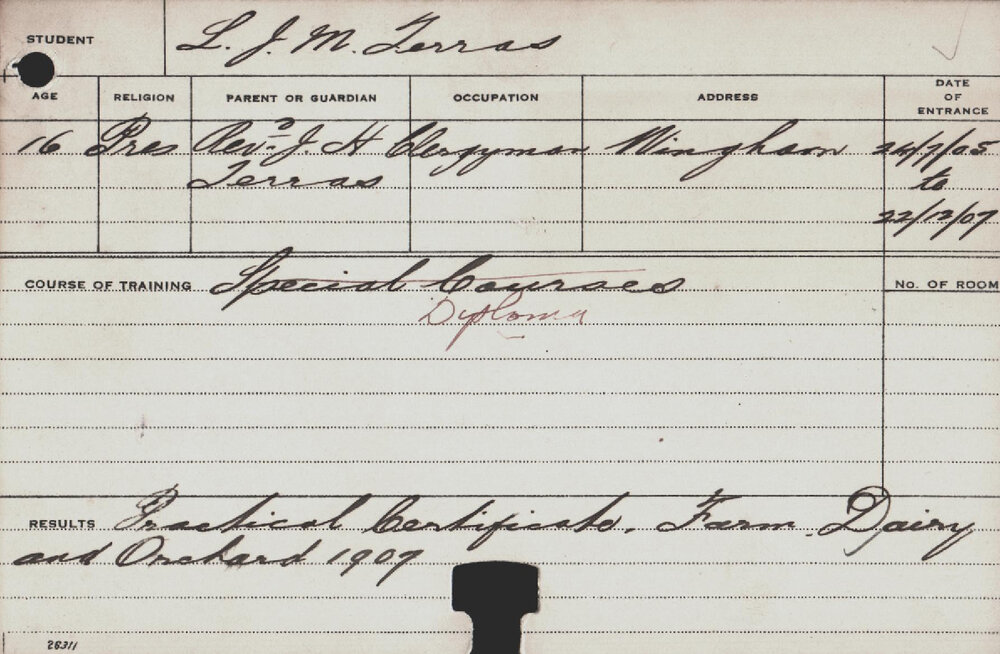 STUDENT L. J. M. Terras
AGE RELIGION PARENT OR GUARDIAN OCCUPATION ADDRESS DATE OF ENTRANCE
16 Pres Revd. J. H Clergyman Wingham 24/7/05
Terras to
22/12/07
COURSE OF TRAINING Special Courses No. OF ROOM
Diploma
RESULTS Practical Certificate, Farm, Dairy
and Orchard 1907
26311